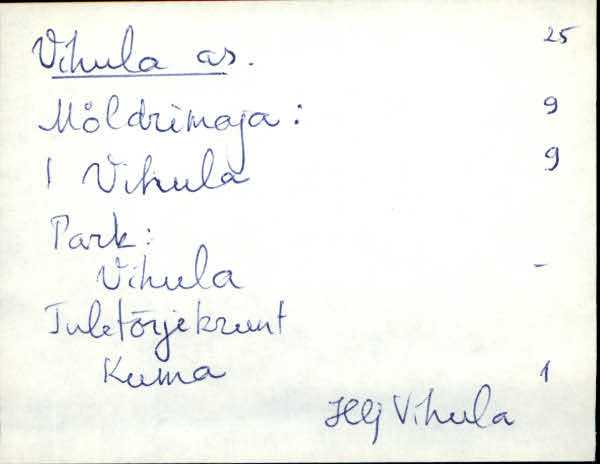 Vihula as. 25
Möldrimaja: 9
1 Vihula 9
Park:
Vihula -
Tuletõrjekrunt
Kuma 1
Hlj Vihula